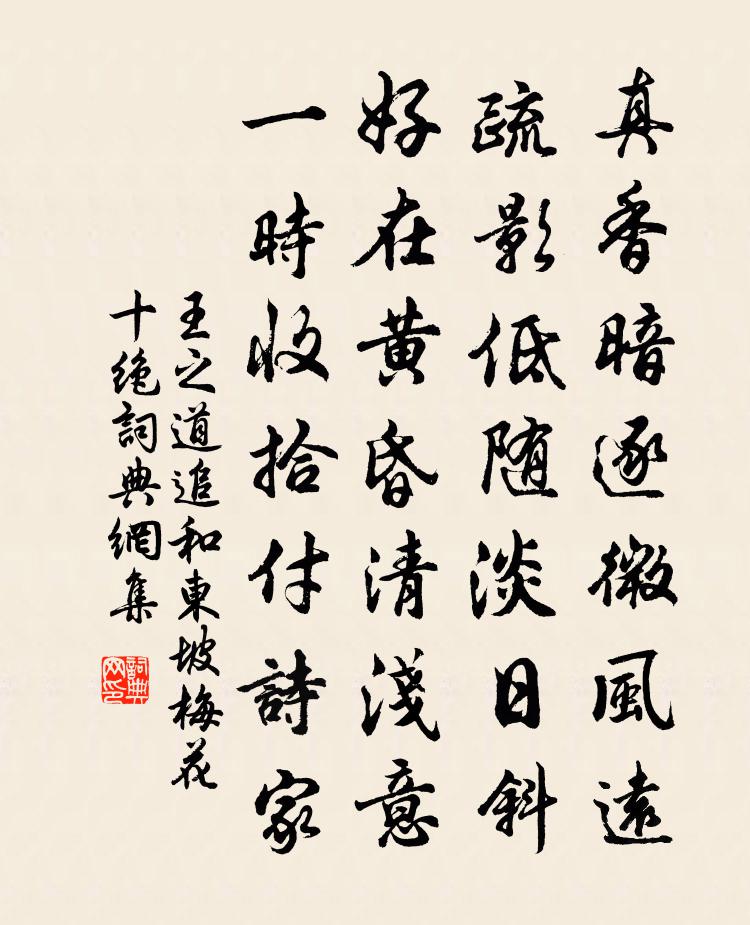 真香暗逐微風遠
疏影低随淡日斜
好在黄昏清淺意
一時收拾付詩家
王之道追和東坡梅花
十絶詞典網集
詞典
网印